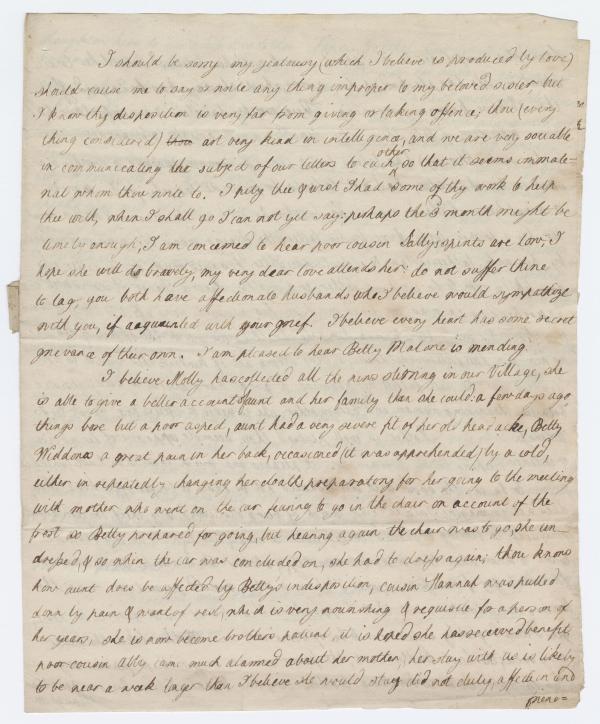 I should be sorry my jealousy (which I believe is produced by love)
should cause me to say or write any thing improper to my beloved sister but
I know thy disposition is very far from giving or taking offence; thou (every
thing considered) thou art very kind in intelligence, and we are very sociable
other
in communicating the subject of our letters to each so that it seems immate=
rial whom thou write to. I pity thee & wish I had some of thy work to help
thee with, when I shall go I can not yet say: perhaps the 3 month might be
timely enough, I am concerned to hear poor cousin Sally's spirits are low, I
hope she will do bravely, my very dear love attends her: do not suffer thine
to lag, you both have affectionate husbands who I believe would sympathize
with you, if aquainted with your grief. I believe every heart has some secret
grievance of their own. I am pleased to hear Betty Malone is mending.
I believe Molly has collected all the news stirring in our Village, she
is able to give a better account of aunt and her family than she could a few days ago
things bore but a poor aspect, aunt had a very severe fit of her old head ache, Betty
Widdons a great pain in her back, occasioned (it was apprehended) by a cold,
either in repeatedly changing her cloaths preparatory for her going to the meeting
with mother who went on the car fearing to go in the chair on account of the
frost so Betty prepared for going, but hearing again the chair was to go, she un
dressed, & so when the car was concluded on, she had to dress again; thou knows
how aunt does be affected by Betty's indisposition, cousin Hannah was pulled
down by pain & want of rest, which is very nourishing & requisite for a person of
her years, she is now become brother's patient, it is hoped she has received benefit,
poor cousin Abby came much alarmed about her mother, her stay with us is likely
to be near a week larger than I believe she would stay did not duty, affection and